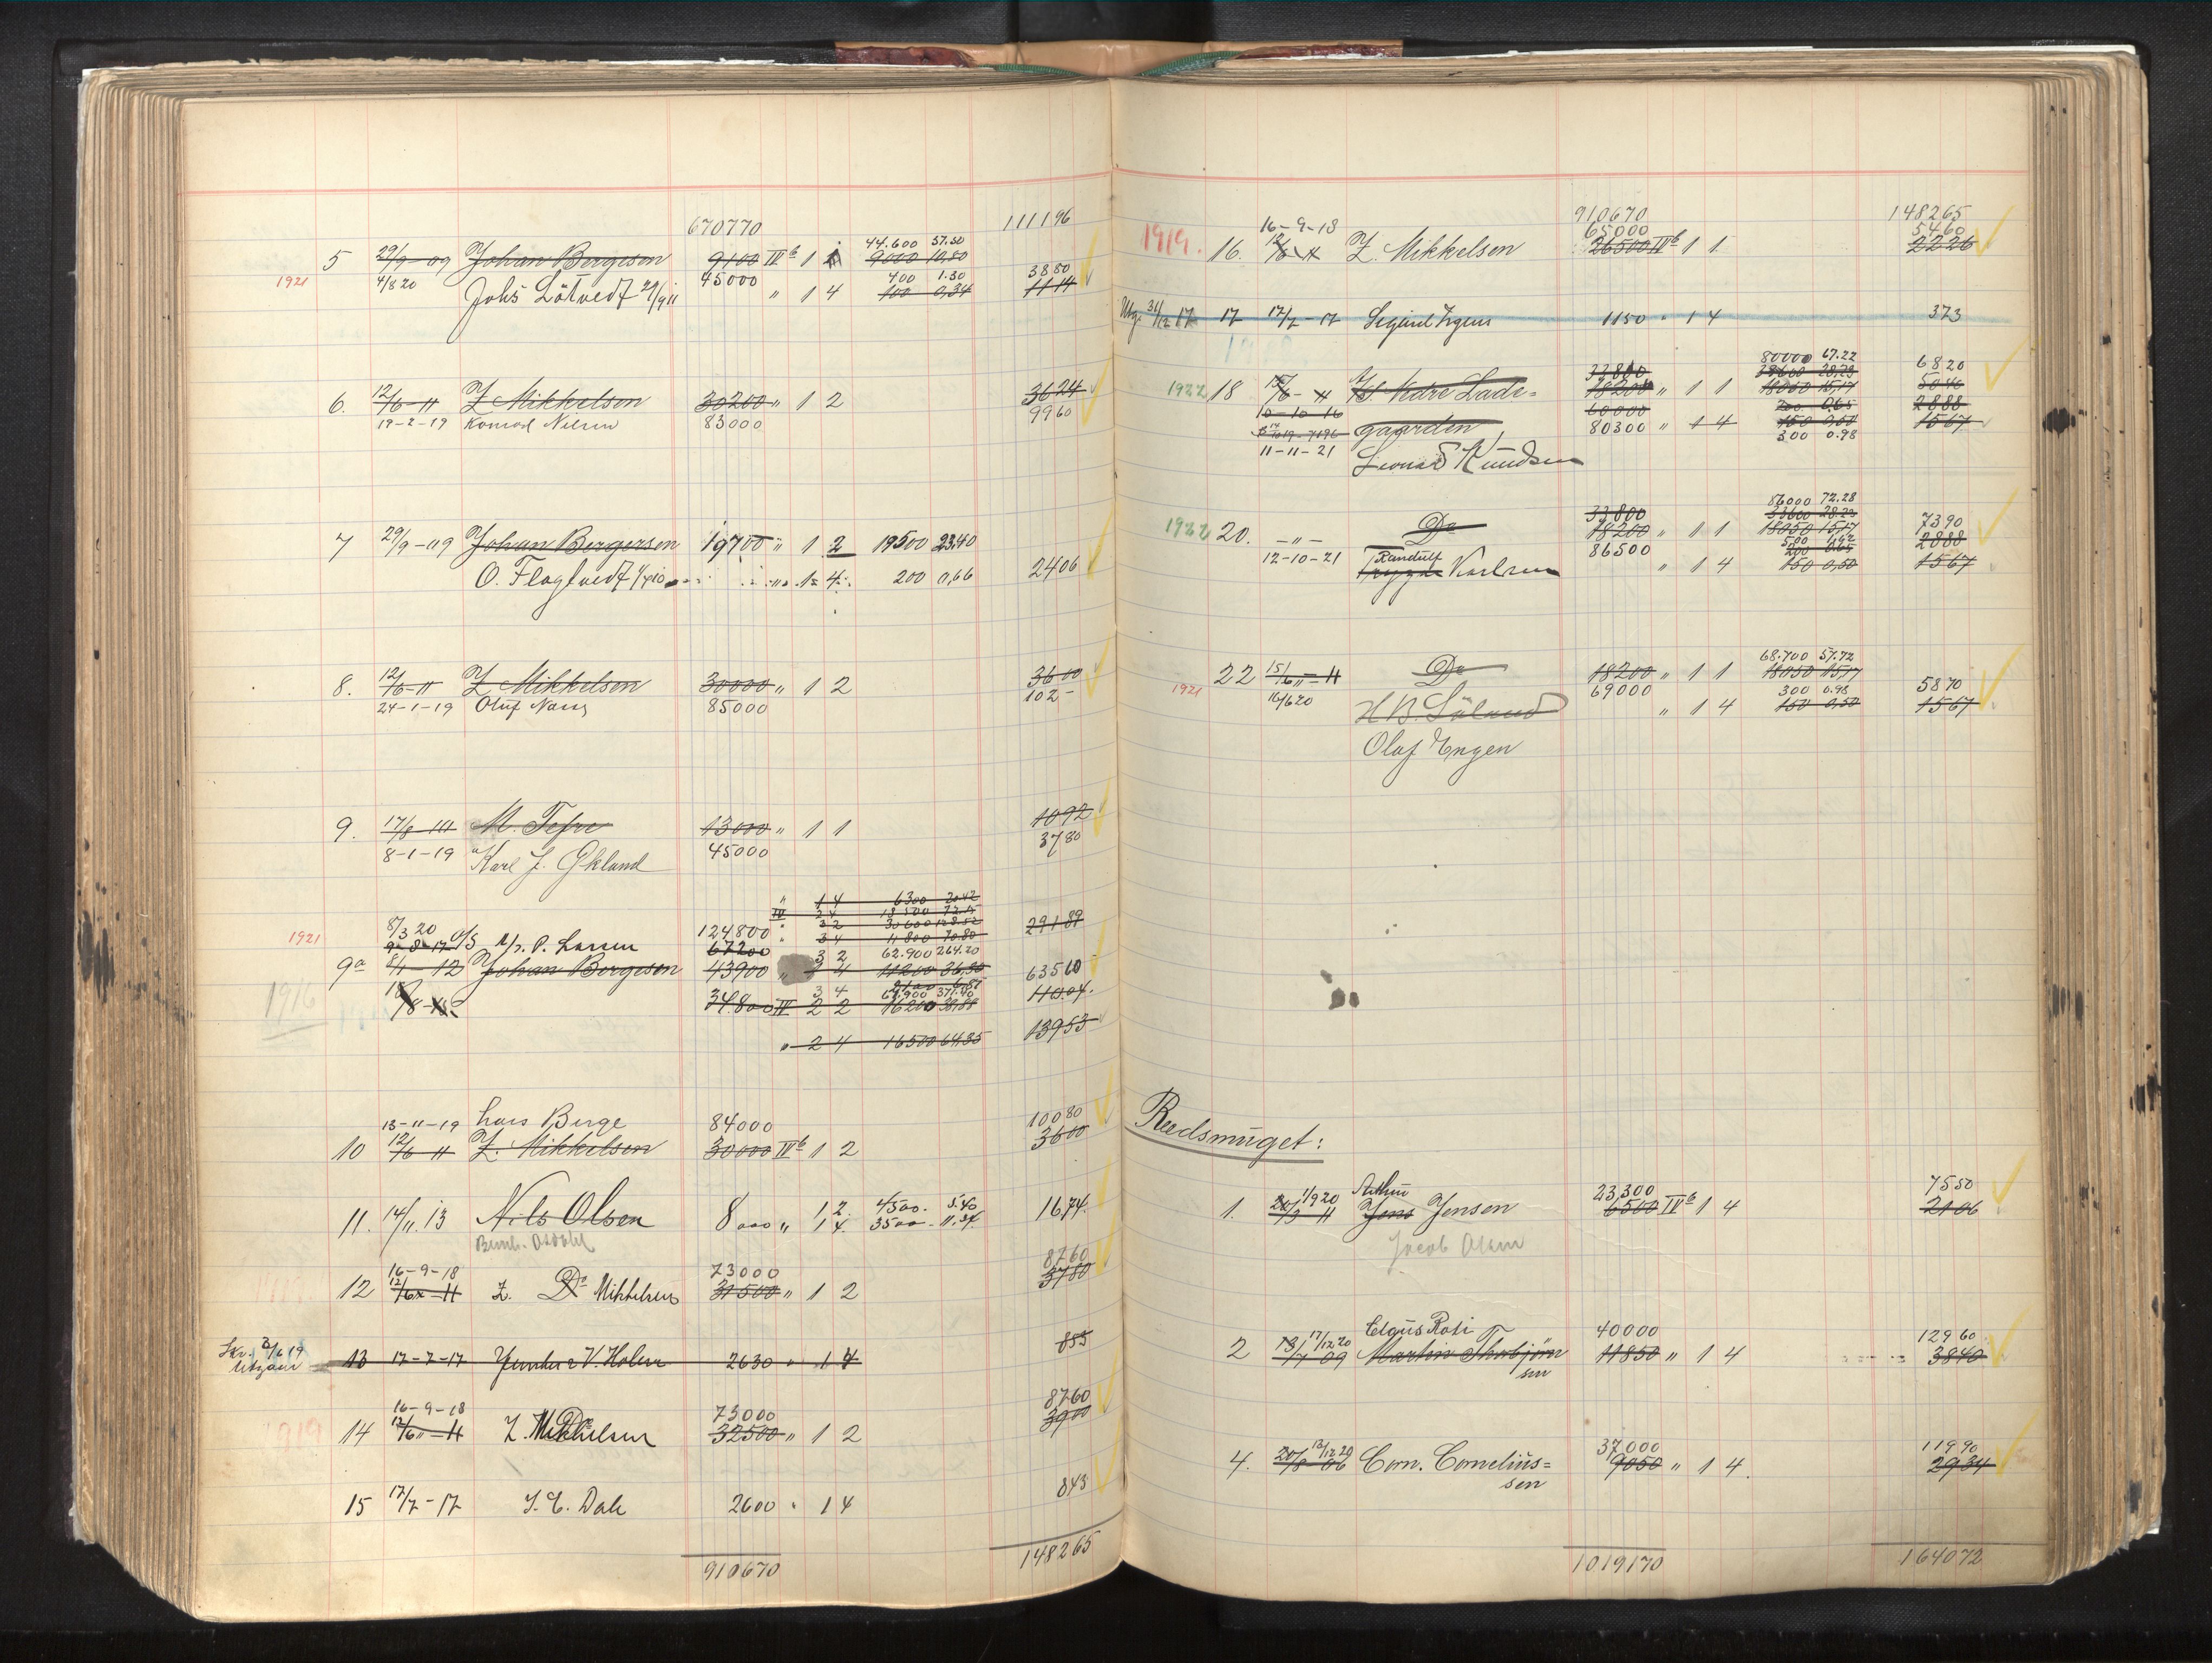 670770 111196
5 29/9-09 Johan Bergesen 9100 IVb 1 1 44.600 57.50
9000 10,80
1921 4/8 20 45000 400 1.30 3880
Johs Lötvedt 29/9 11 " 1 4 100 0,34 1114
6. 12/6-11 Z Mikkelsen 30200 " 1 2 3624
19-2-19 Konrad Nilsen 83000 9960
7 29/9-09 Johan Bergersen 19700 " 1 2 19500 23,40
O. Flagtvedt " 1 4 200 0,66 2406
8. 12/6-11 Z Mikkelsen 30000 " 1 2 3600
24-1-19 Oluf Næss 85000 102-
9. 17/8-11 M. Tefre 13000 " 1 1 1092
8-1-19 Karl J. Økland 45000 3780
" 1 4 6300 20.42
IV 2 4 18500 72.15
" 3 2 30600 128.52 29189
8/3 20 124800 " 3 4
1921 9-8-17 A/S P. Larsen 67200 3 2 62.900 264.20
9a 8/1-12 Johan Bergesen 43900 " 3 4 11200 36,30 63560
1916 3 4 61.900 371.40 11004
34.800 IV 2 2 16200 38,88
" 2 4 16500 64,35 13953
13-11-19 Lars Berge 84000 10080
10 12/6 11 Z. Mikkelsen 30000 IVb 1 2 3600
11. 14/11.13 Nils Olsen 8000 " 1 2. 4500. 5.40
1 4. 3500. 11.34 1674.
Bernh.
16-9-18 73000 8760
12 12/6-11 Z. Do Mikkelsen 31500 " 1 2 3780
2/6 19
Utgaar 13 17-7-17 V. Holm 2630 " 1 4 853
16-9-18 73000 8760
1919 14 12/6-11 Z. Mikkelsen 32500 " 1 2 3900
15 17/7-17 J. E. Dale 2600 " 1 4 843
910670 148265
16-9-18 910670 148265
65000 5460
1919. 16. 12/6 11 Z. Mikkelsen 26500 IVb 1 1 2226
Utg. 31/12 17 17 17/7-17 Sigurd Irgens 1150 " 1 4 373
80000 67.22
33800 33600 28.23 6820
1922 18 15/6-11 Nedre Lade- 18200 " 1 1 18050 15,17 5046
10-10-16 60000 200 0.65 2888
gaarden 80300 " 1 4 150 0,50 1567
11-11-21 300 0.98
Leonard Knudsen
86000 72.28
33800 33600 28.23
1922 20. - " - Do 18200 " 1 1 18050 15,17 7390
500 1,62
12-10-21 Randulf 86500 200 0.65 2888
Trygve Karlsen " 1 4 150 0,50 1567
68.700 57.72
22 15/6-11 Do 18200 " 1 1 18050 15,17
1921 16/6 20 69000 300 0.98 5870
H B. Söland " 1 4 150 0,50 1567
Olaf Engen
Rædsmüget:
1/9 20 Arthur 23300 7550
1. 24/3 11 Jens Jensen 6500 IVb 1 4 2106
Jacob Olsen
17/12 20 Claus Roti 40000 12960
2 13/7 09 Martin Thorbjörn 11850 " 1 4 3840
sen
13/12 20 37000 11990
4. 20/8-06 Corn. Cornelius= 9050 " 1 4. 2934
sen
1019170 164072